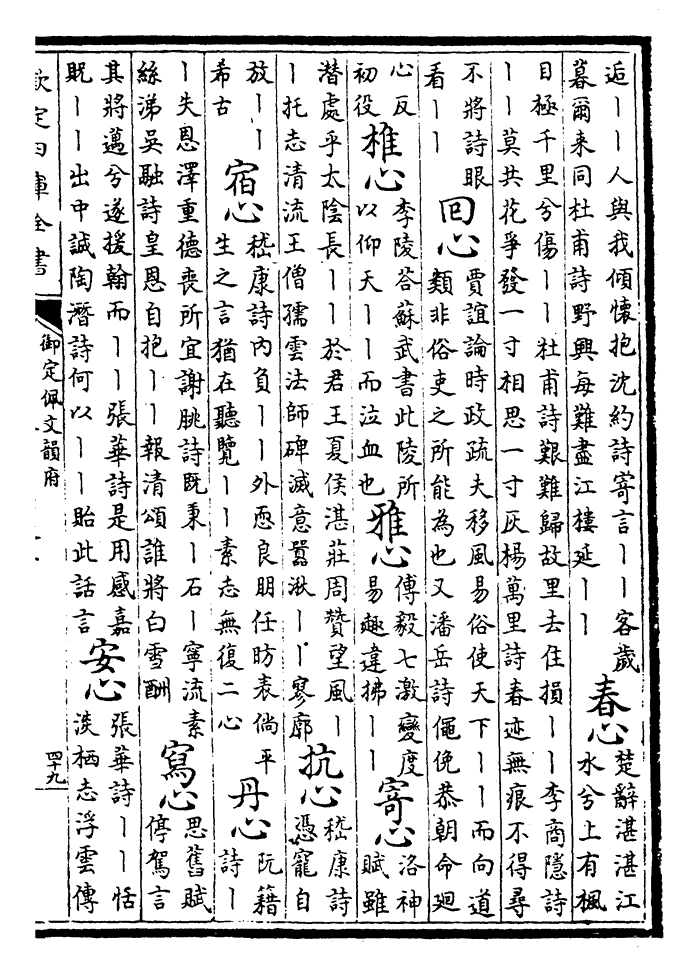 逅〡〡人與我傾懷抱沈約詩寄言〡〡客歲
暮爾来同杜甫詩野興每難盡江樓延〡〡
春心
楚辭湛湛江
水兮上有楓
目極千里兮傷〡〡杜甫詩艱難歸故里去住損〡〡李商隱詩
〡〡莫共花爭發一寸相思一寸灰楊萬里詩春迹無痕不得尋
不將詩眼
看〡〡
回心
賈誼論時政疏夫移風易俗使天下〡〡而向道
類非俗吏之所能為也又潘岳詩僶俛恭朝命廻
心反
初役
椎心
李陵答蘇武書此陵所
以仰天〡〡而泣血也
雅心
傅毅七激變度
易趣違拂〡〡
寄心
洛神
賦雖
潜處乎太陰長〡〡於君王夏侯湛莊周贊望風〡
〡托志清流王僧孺雲法師碑滅意囂湫〡〡寥廓
抗心
嵇康詩
憑寵自
放〡〡
希古
宿心
嵇康詩內負〡〡外恧良朋任昉表倘平
生之言猶在聽覽〡〡素志無復二心
丹心
阮籍
詩〡
〡失恩澤重德喪所宜謝朓詩既秉〡石〡寧流素
絲涕吳融詩皇恩自抱〡〡報清頌誰將白雪酬
寫心
思舊賦
停駕言
其將邁兮遂援翰而〡〡張華詩是用感嘉
貺〡〡出中誠陶潛詩何以〡〡貽此話言
安心
張華詩〡〡恬
淡栖志浮雲傳
欽定四庫全書
御定佩文韻府
四十九